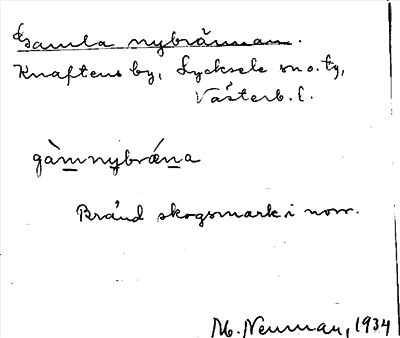 Gamla nybrännan.
Knaftens by, Lycksele sn o. tg,
Västerb. l.
gàmnybrǽna
Bränd skogsmark i norr.
M. Neuman, 1934